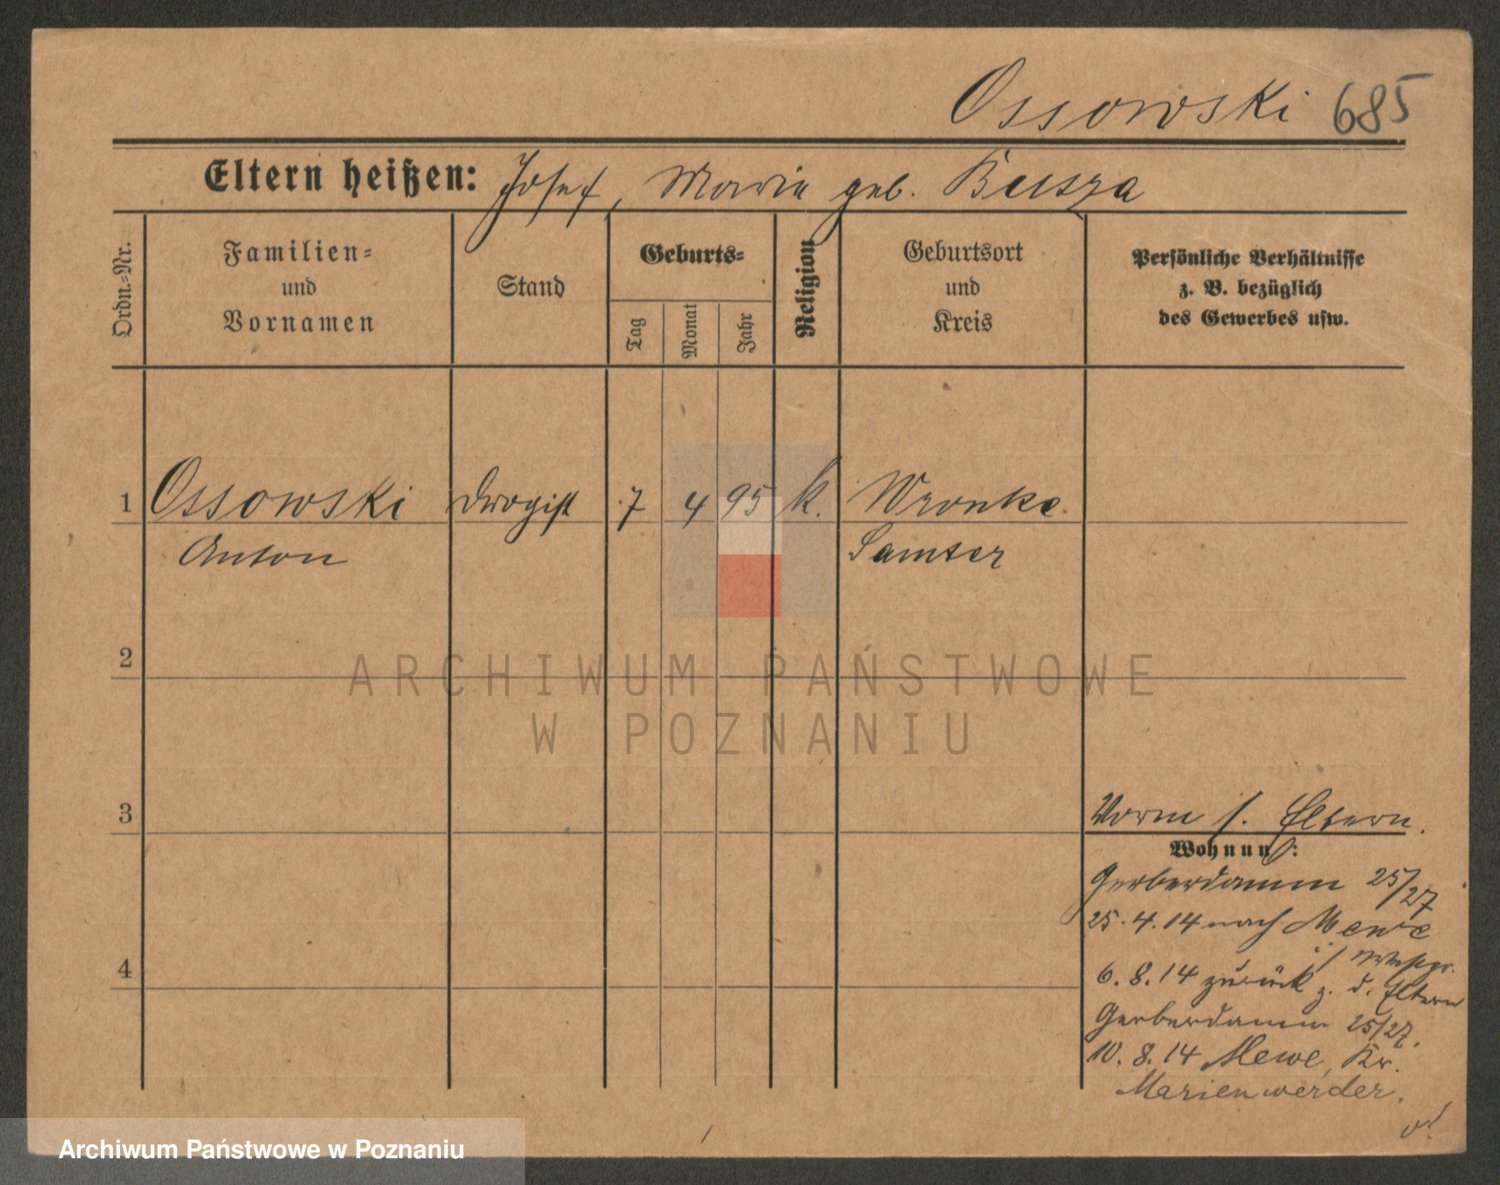 Ossowski 685
Eltern heißen: Josef, Maria geb. Busza
Ordn.-Nr.
Familien-
und
Vornamen
Stand
Geburts-
Tag
Monat
Jahr
Religion
Geburtsort
und
Kreis
Persönliche Verhältnisse
z. B. bezüglich
des Gewerbes usw.
1 Ossowski Drogist 7 4 95 k. Wronke
Anton Samter
2
ARCHIWUM PAŃSTWOWE
W POZNANIU
3
Vorm s. Eltern.
Wohnung:
Gerberdamm 25/27
25.4.14 nach Mewe
i/ Westpr.
4
6.8.14 zurück z. d. Eltern
Gerberdamm 25/27.
10.8.14 Mewe, Kr.
Marienwerder.
Archiwum Państwowe w Poznaniu